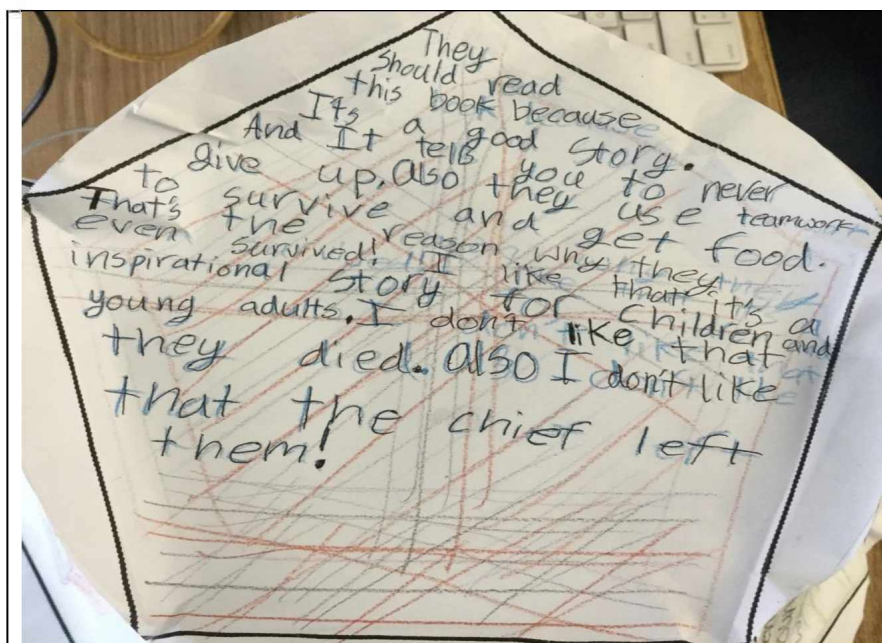 They
Should read
this book because
Its a good Story.
And It tells you to never
give up. also they use teamwork
to survive and get food.
That's the reason why they
even survived! I like that it's a
inspirational story for children and
young adults. I don't like that
they died. also I don't like
that the chief left
them!